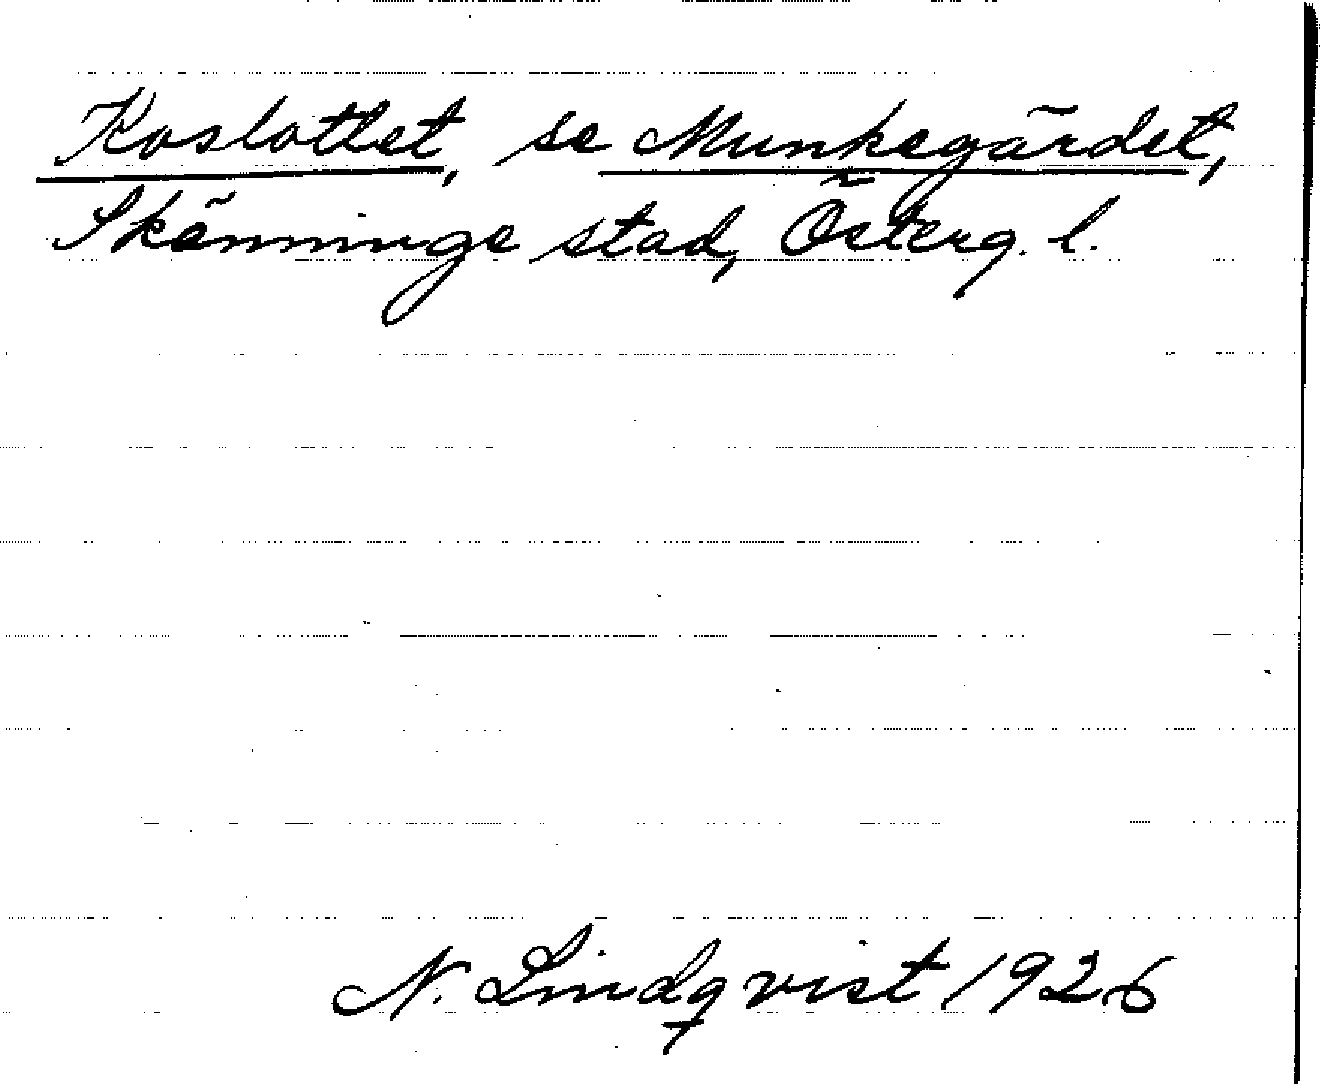 Koslottet, se Munkegärdet,
Skänninge stad, Österg. l.
N. Lindqvist 1926